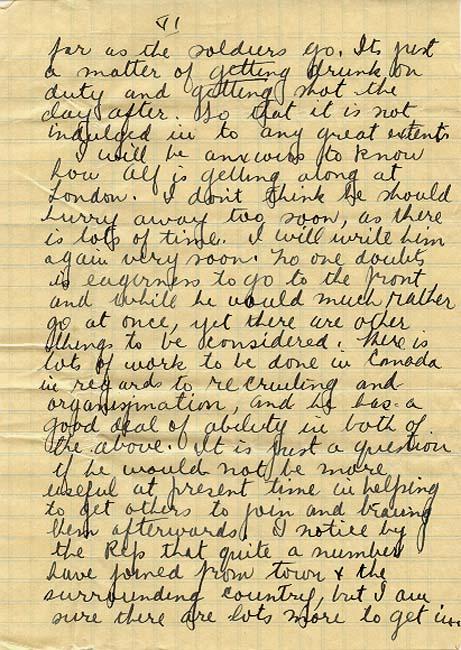 VI
far as the soldiers go. Its just
a matter of getting drunk on
duty and getting shot the
day after. So that it is not
indulged in to any great extents
I will be anxious to know
how Alf is getting along at
London. I dont think he should
hurry away too soon, as there
is lots of time. I will write him
again very soon. No one doubts
is eagerness to go to the front
and while he would much rather
go at once, yet there are other
things to be considered. There is
lots of work to be done in Canada
in regards to recruiting and
organisination, and he has a
good deal of ability in both of
the above. It is just a question
if he would not be more
useful at present time in helping
to get others to join and
them afterwards. I notice by
the Rep that quite a number
have joined from town & the
surrounding country, but I am
sure there are lots more to get in.